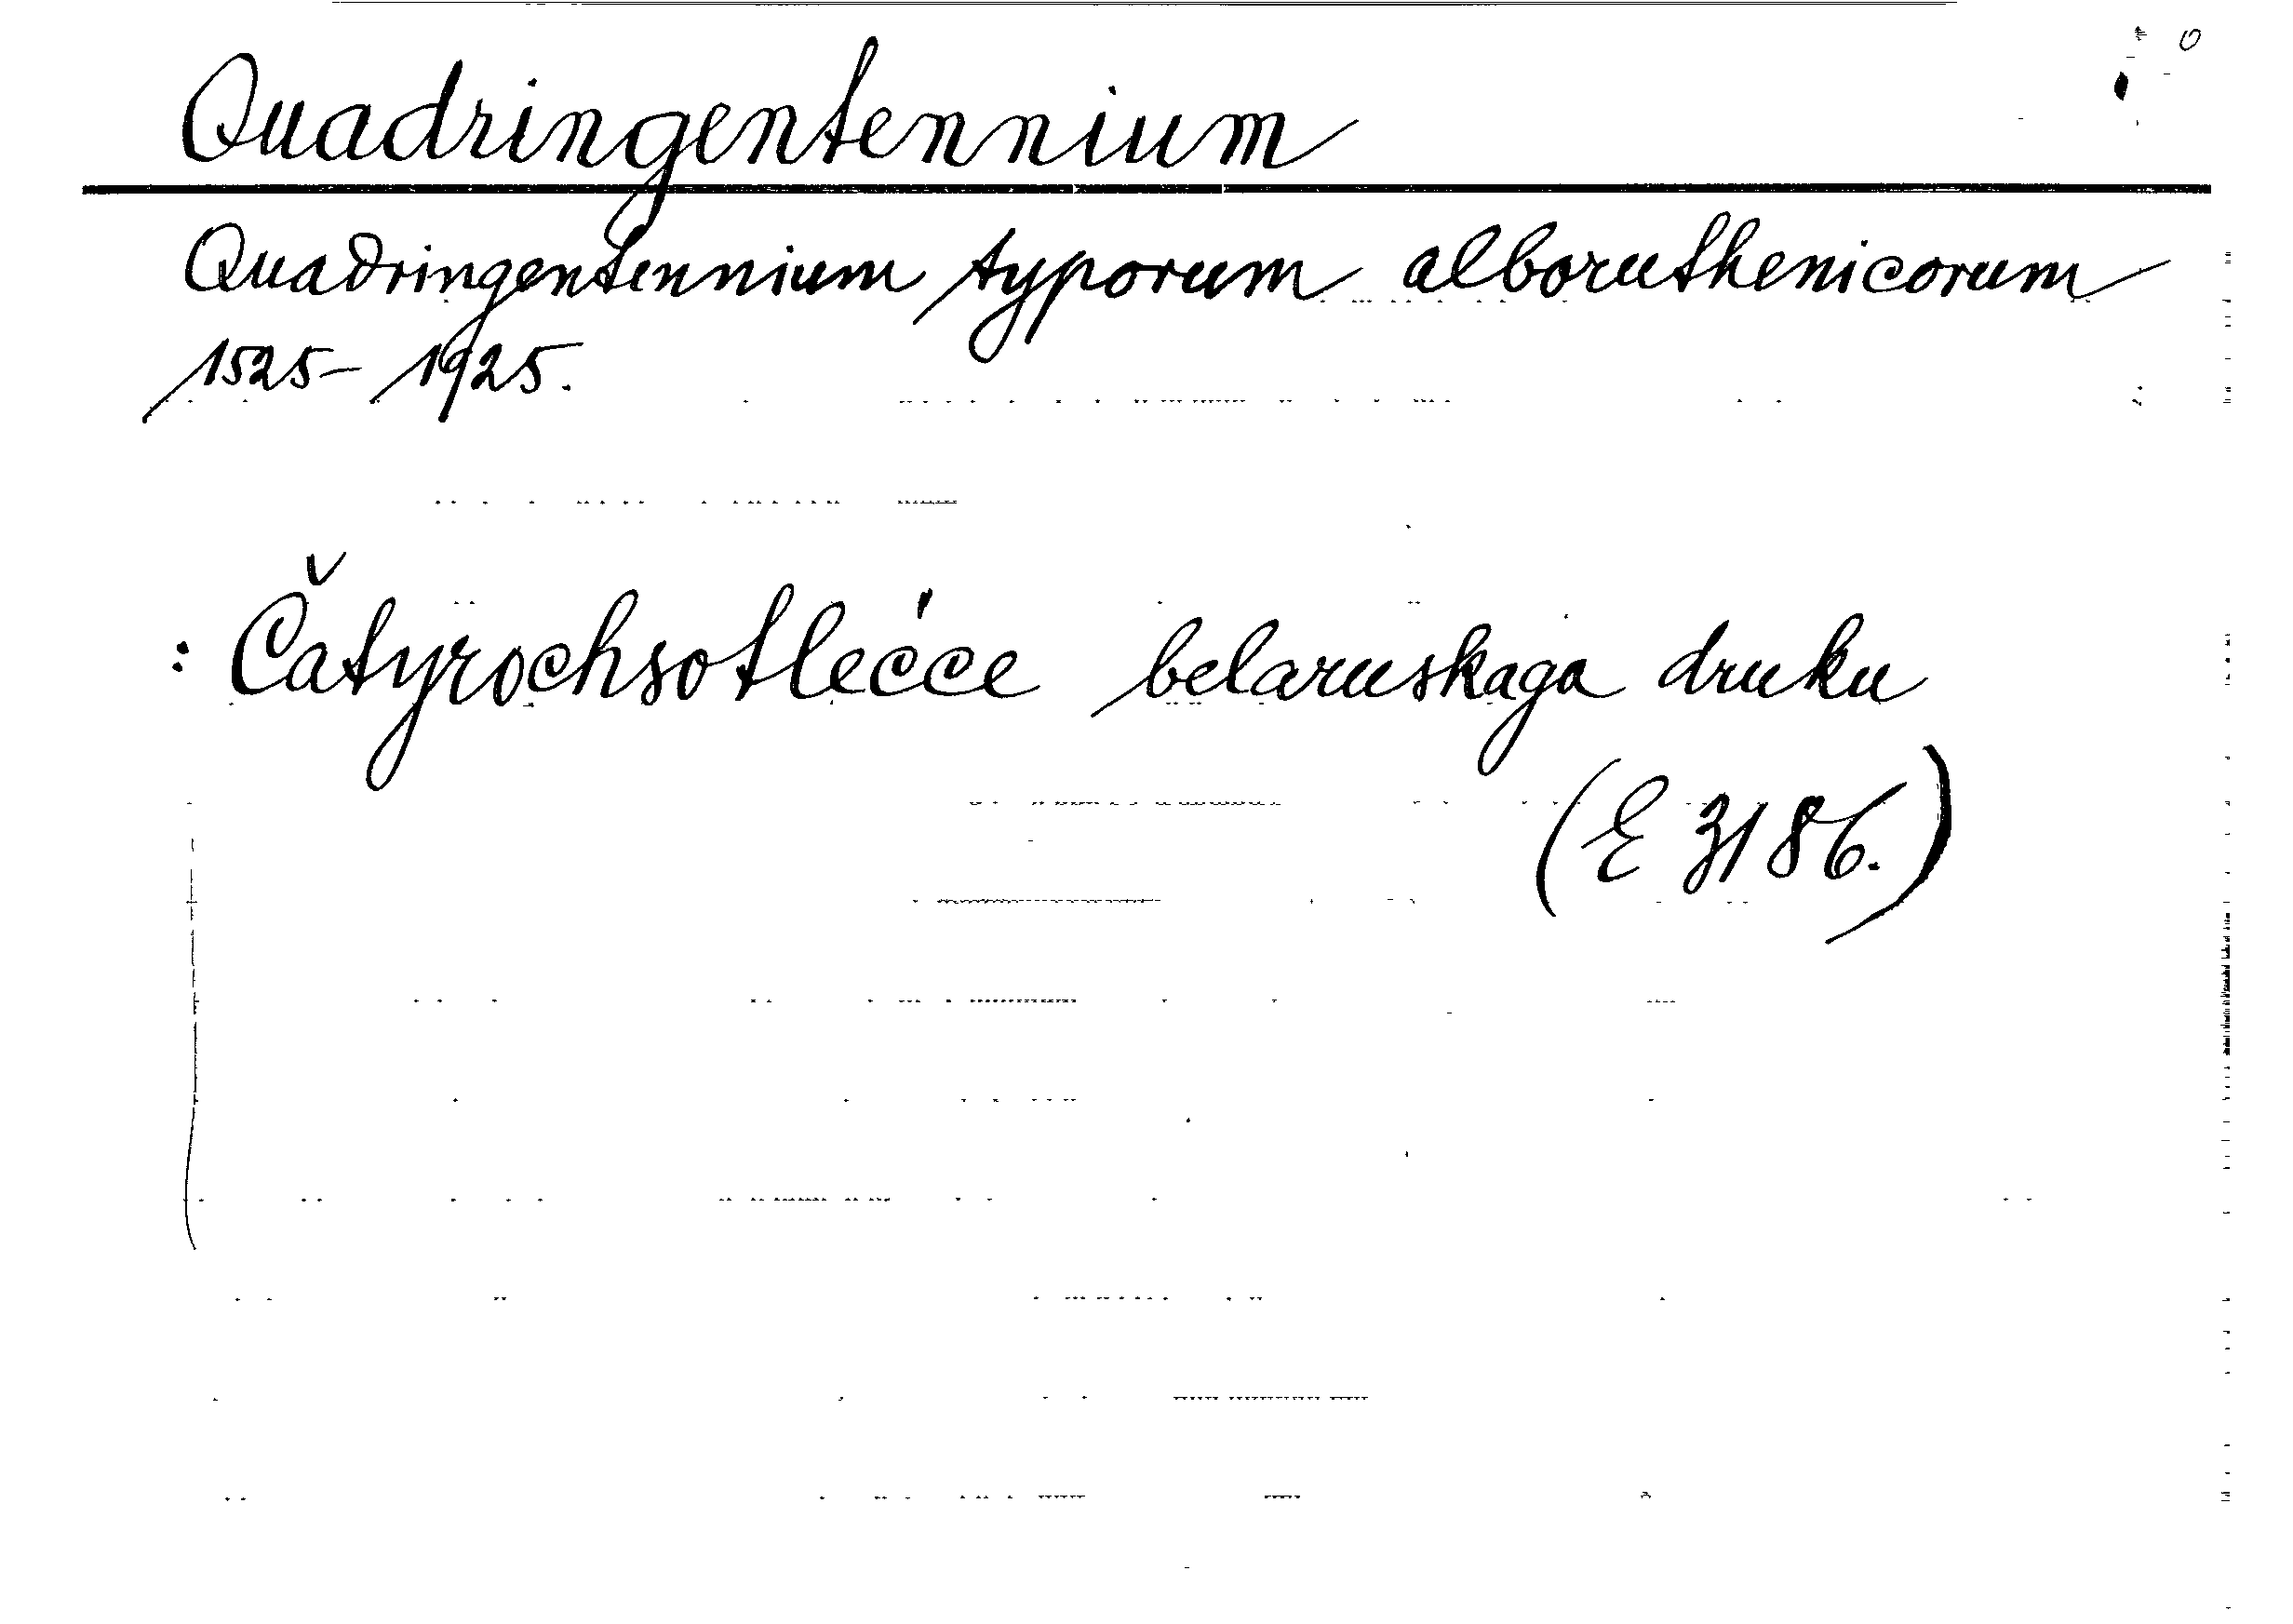 Quadringentennium
Quadringentennium typorum alboruthenicorum
1525 - 1925.
: Čatyrochsotlećce belaruskaga druku
(E 3186.)